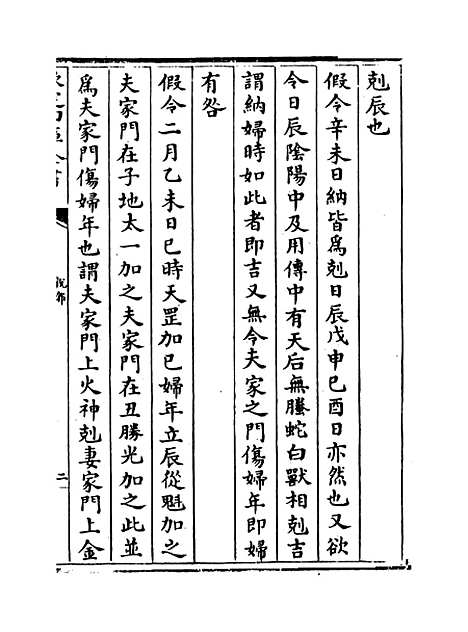 剋辰也
假令辛未日納皆為剋日辰戊申己酉日亦然也又欲
令日辰陰陽中及用傳中有天后無螣蛇白獸相剋吉
謂納婦時如此者即吉又無令夫家之門傷婦年即婦
有咎
假令二月乙未日巳時天罡加巳婦年立辰從魁加之
夫家門在子地太一加之夫家門在丑勝光加之此並
為夫家門傷婦年也謂夫家門上火神剋妻家門上金
說郛
二